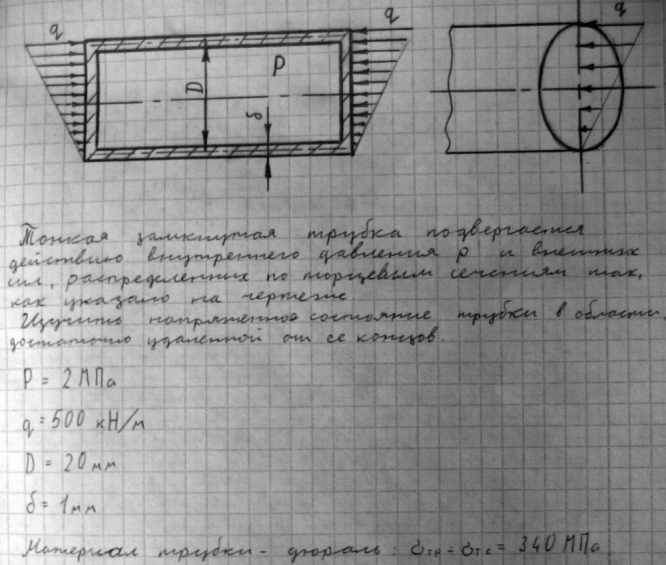 q
q
q
P
D
δ
Тонкая замкнутая трубка подвергается
действию внутреннего давления p и внешних
сил, распределенных по торцевым сечениям так,
как указано на чертеже.
Изучить напряженное состояние трубки в области,
достаточно удаленной от ее концов.
P = 2 МПа
q = 500 кН/м
D = 20 мм
δ = 1 мм
Материал трубки - дюраль: σтр = σтс = 340 МПа